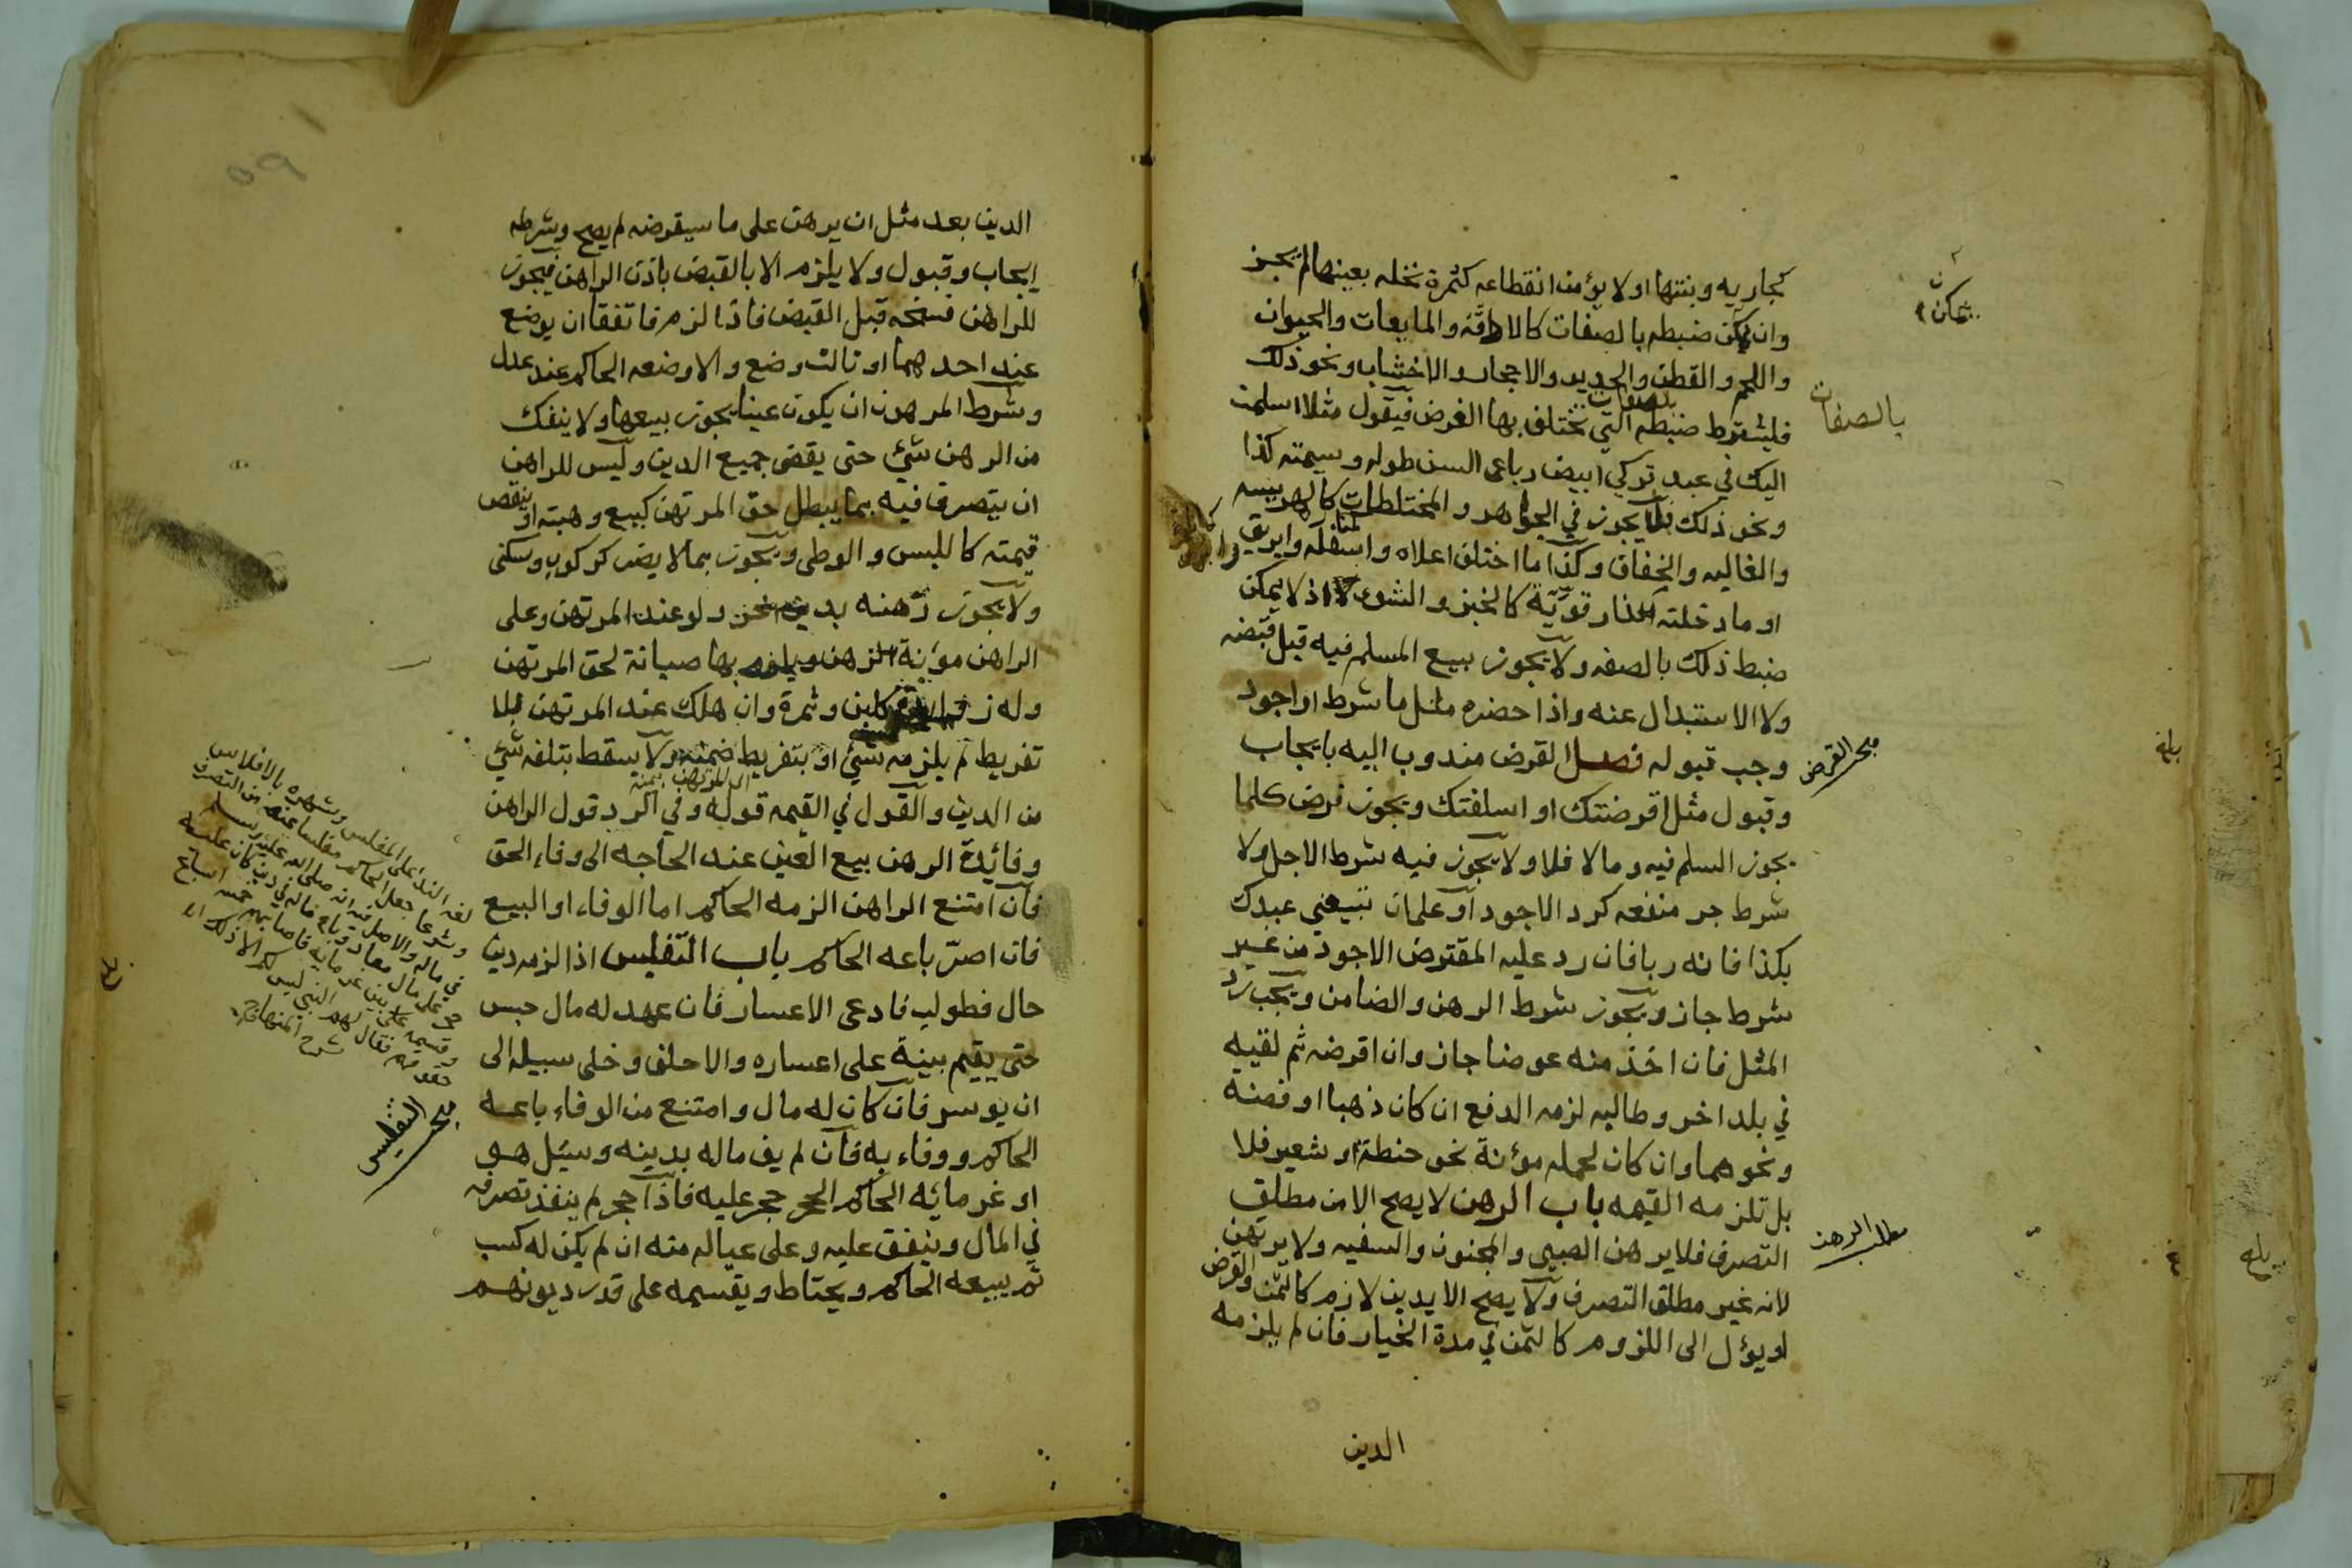 كجاريه وبنتها او لا يؤمن انقطاعه كثمرة نخله بعينها لم يجز
وان يمكن ضبطه بالصفات كالادقة والمايعات والحيوان
واللحم والقطن والحديد والاحجار والاخشاب ونحو ذلك
فليشترط ضبطه بالصفات التي تختلف بها الغرض فيقول مثلا اسلمت
اليك في عبد تركي ابيض رباعي السن طوله وسيمته كذا
ونحو ذلك فلا يجوز في الجواهر والمختلطات كالهريسه
والغاليه والخفاف وكذا ما اختلف اعلاه واسفله كمنارة وابريق
او ما دخلته نار قوية كالخبز والشوي اذ لا يمكن
ضبط ذلك بالصفه ولا يجوز بيع المسلم فيه قبل قبضه
ولا الاستبدال عنه واذا حضره مثل ما شرط او اجود
وجب قبوله فصل القرض مندوب اليه بايجاب
وقبول مثل اقرضتك او اسلفتك ويجوز قرض كلما
يجوز السلم فيه وما لا فلا ولا يجوز فيه شرط الاجل ولا
شرط جر منفعه كرد الاجود او على ان تبيعني عبدك
بكذا فانه ربا فان رد عليه المقترض الاجود من غير
شرط جاز ويجوز شرط الرهن والضامن ويجب رد
المثل فان اخذ منه عوضا جاز وان اقرضه ثم لقيه
في بلد اخر وطالبه لزمه الدفع ان كان ذهبا او فضة
ونحوهما وان كان لحمله مؤنة نحو حنطة او شعير فلا
بل تلزمه القيمه باب الرهن لا يصح الا من مطلق
التصرف فلا يرهن الصبي والمجنون والسفيه ولا يرتهن
لانه غير مطلق التصرف ولا يصح الا بدين لازم كالثمن والقرض
او يؤل الى اللزوم كالثمن في مدة الخيار فان لم يلزمه
الدين
يمكن
بالصفات
مبحث القرض
مطلب الرهن
بلغ
بلغ
٥٩
الدين بعد مثل ان يرهن على ما سيقرضه لم يصح وشرطه
ايجاب وقبول ولا يلزم الا بالقبض باذن الراهن فيجوز
للراهن فسخه قبل القبض فاذا لزم فاتفقا ان يوضع
عند احدهما او ثالث وضع والا وضعه الحاكم عند عدل
وشرط المرهون ان يكون عينا يجوز بيعها ولا ينفك
من الرهن شيئ حتى يقضى جميع الدين وليس للراهن
ان يتصرف فيه بما يبطل حق المرتهن كبيع وهبته او ينقص
قيمته كاللبس والوطي ويجوز بما لا يضر كركوب وسكنى
ولا يجوز رهنه بدين اخر ولو عند المرتهن وعلى
الراهن مؤنة الرهن ويلزم بها صيانة لحق المرتهن
وله زوائده كلبن وثمرة وان هلك عند المرتهن بلا
تفريط لم يلزمه شيئ او بتفريط ضمنه ولا يسقط بتلفه شيئ
من الدين والقول في القيمه قوله وفي الرد قول الراهن
وفائدة الرهن بيع العين عند الحاجه الى وفاء الحق
فان امتنع الراهن الزمه الحاكم اما الوفاء او البيع
فان اصر باعه الحاكم باب التفليس اذا لزمه دين
حال فطولب فادعى الاعسار فان عهد له مال حبس
حتى يقيم بينة على اعساره والا حلف وخلى سبيله الى
ان يوسر فان كان له مال وامتنع من الوفاء باعه
الحاكم ووفاء به فان لم يف ماله بدينه وسئل هو
او غرمائه الحاكم الحجر حجر عليه فاذا حجر لم ينفذ تصرفه
في المال وينفق عليه وعلى عياله منه ان لم يكن له كسب
ثم يبيعه الحاكم ويحتاط ويقسمه على قدر ديونهم
لغة النداء على المفلس وشهره بالافلاس
وشرعا جعل الحاكم مفلسا عنه من التصرف
في ماله والاصل فيه انه صلى الله عليه وسلم
حجر على مال معاذ وباع ماله في دين كان عليه
وقسمه على بين غرمائه فاصابهم خمسة اسباع
حقوقهم فقال لهم النبي ليس لكم الا ذلك
شرح المنهاج
مبحث التفليس